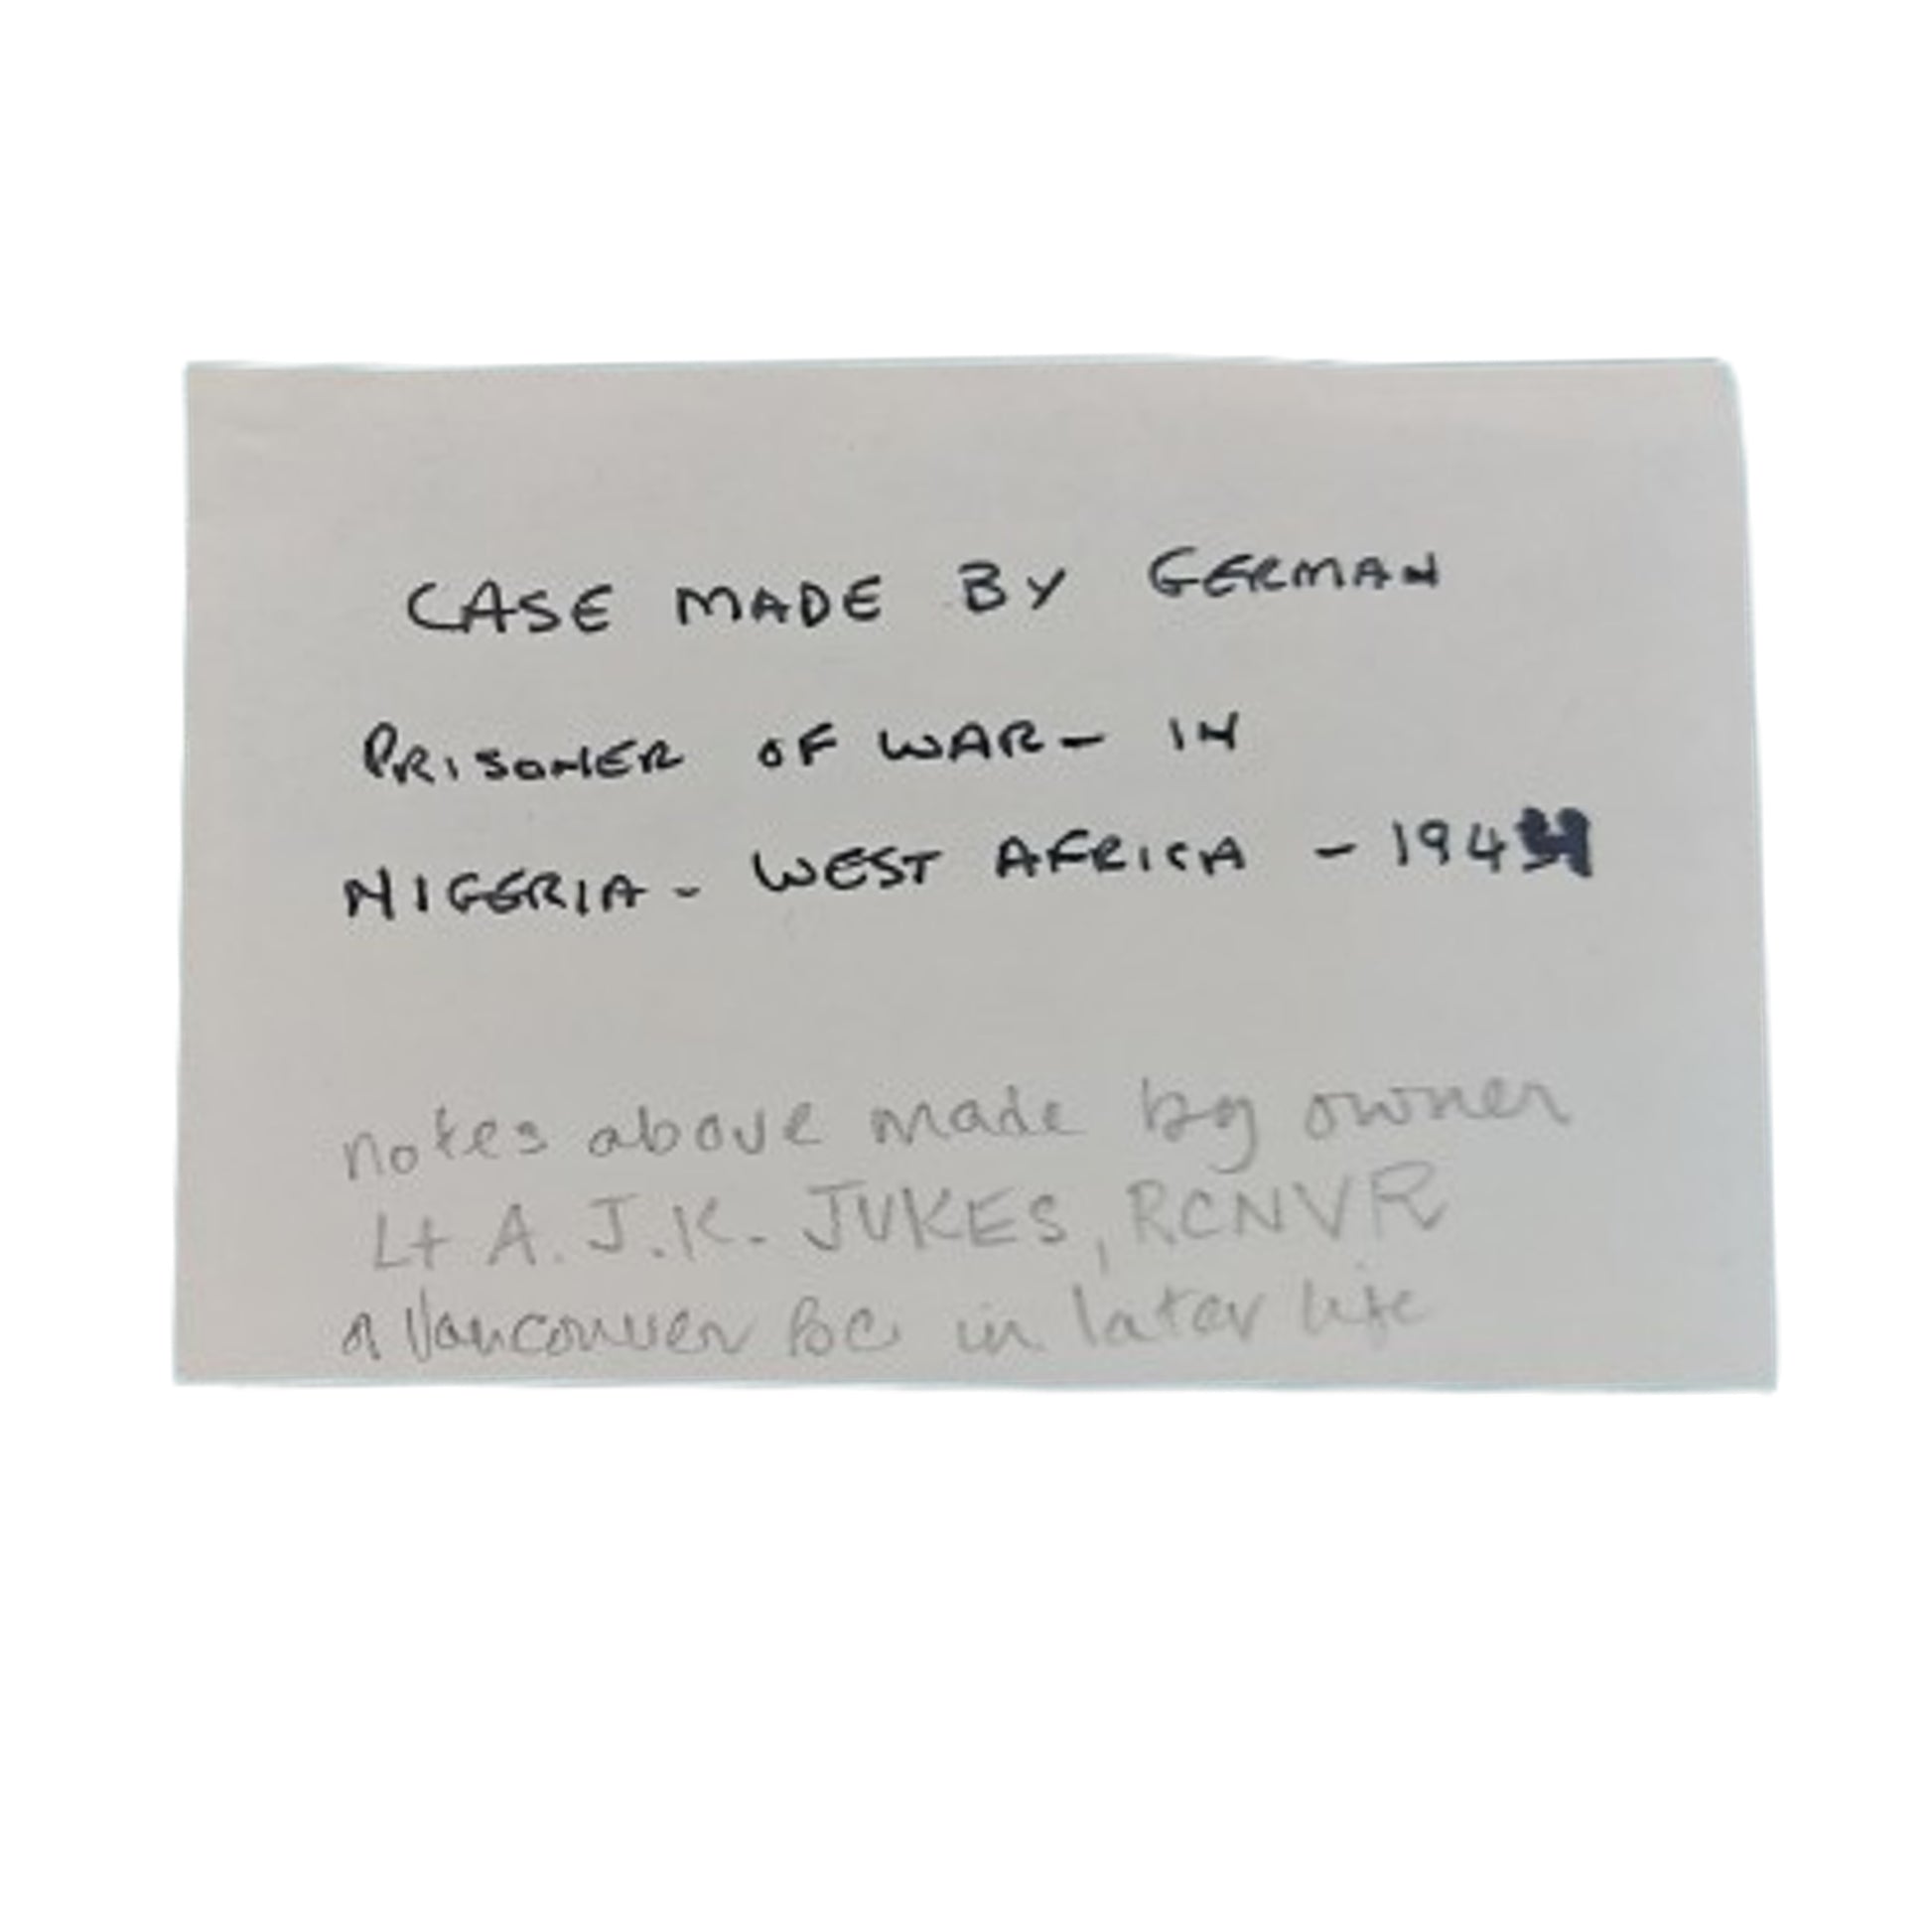 CASE MADE BY GERMAN
PRISONER OF WAR - IN
NIGERIA - WEST AFRICA - 194
notes above made by owner
Lt A. J.K. JUKES, RCNVR
of Vancouver BC in later life